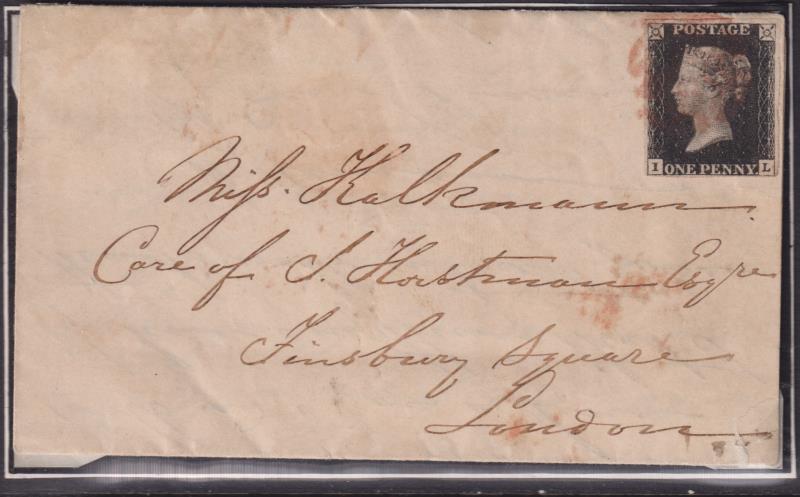 POSTAGE
I ONE PENNY L
Miss. Kalkmann.
Care of S. Horstman Esqre
Finsbury Square
London